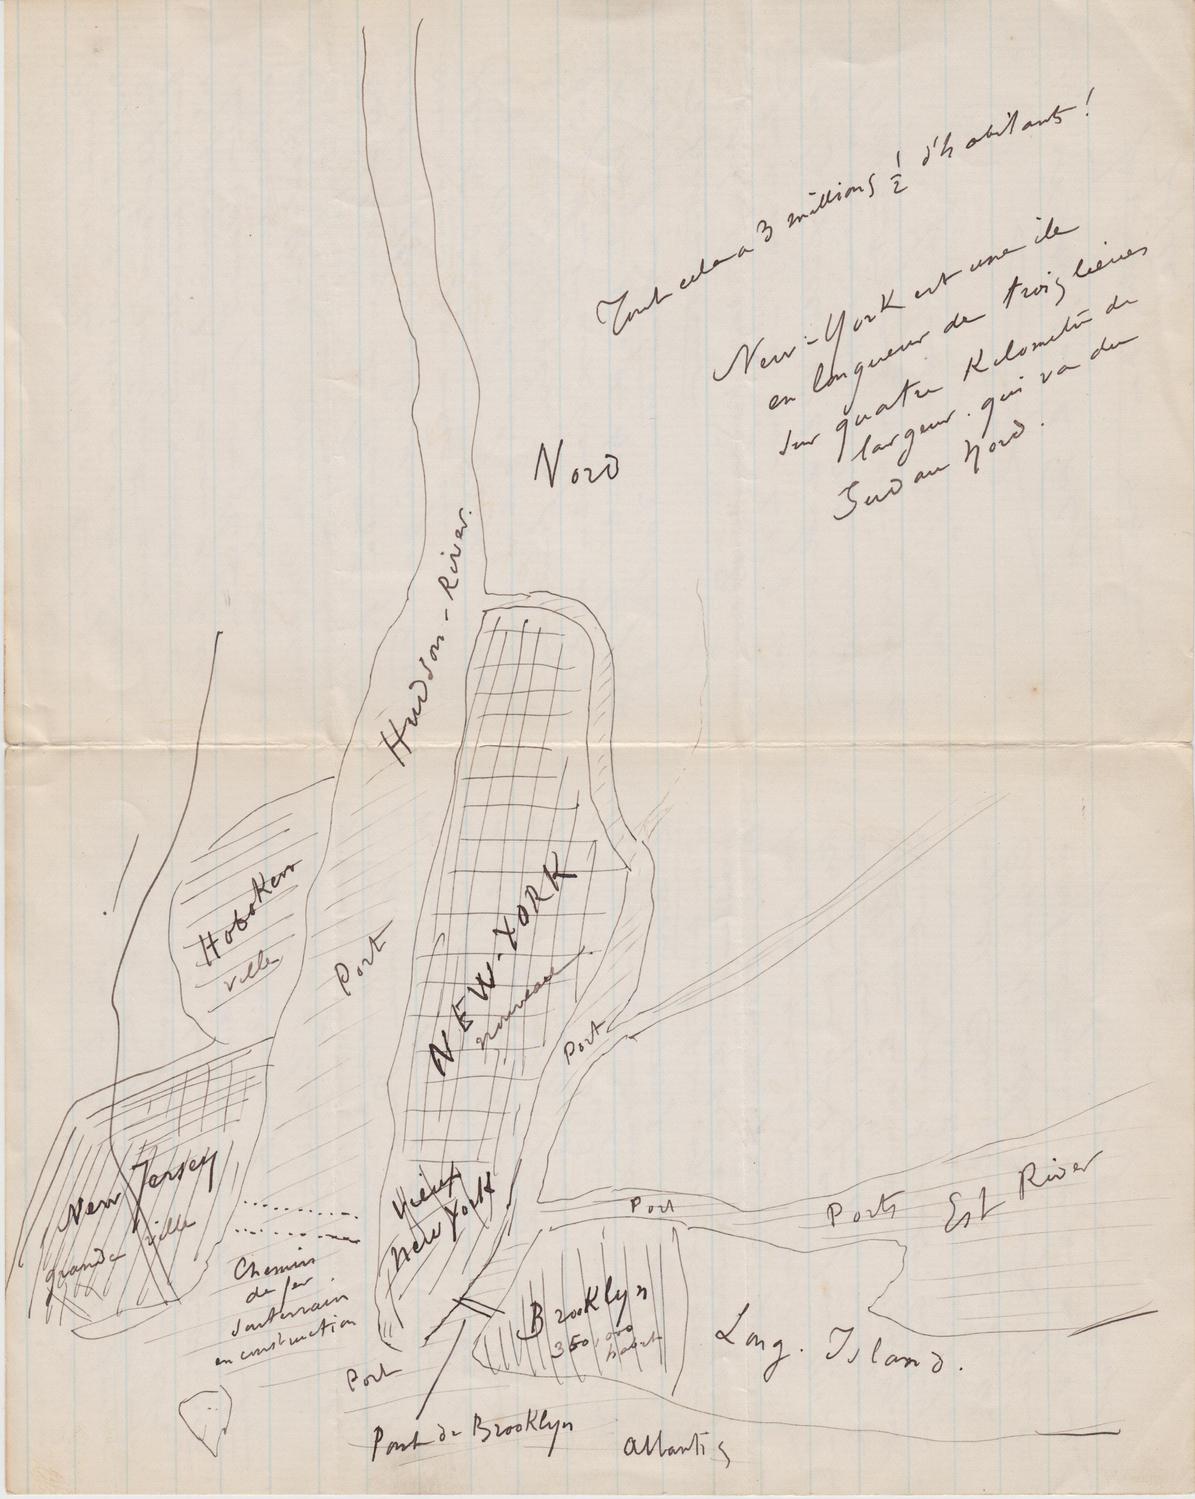 Tout cela a 3 millions 1/2 d'habitants !
New-York est une ile
en longueur de trois lieues
sur quatre Kilomètre de
largeur. qui va du
Sud au Nord.
Nord
Hudson-River.
Hoboken
ville
Port
NEW-YORK
nouveau
Port
New Jersey
grande ville
Vieux
New York
Port
Ports Est River
Chemin
de fer
souterrain
en construction
Brooklyn
350,000
habt
Long. Island.
Port
Pont de Brooklyn
Atlantis